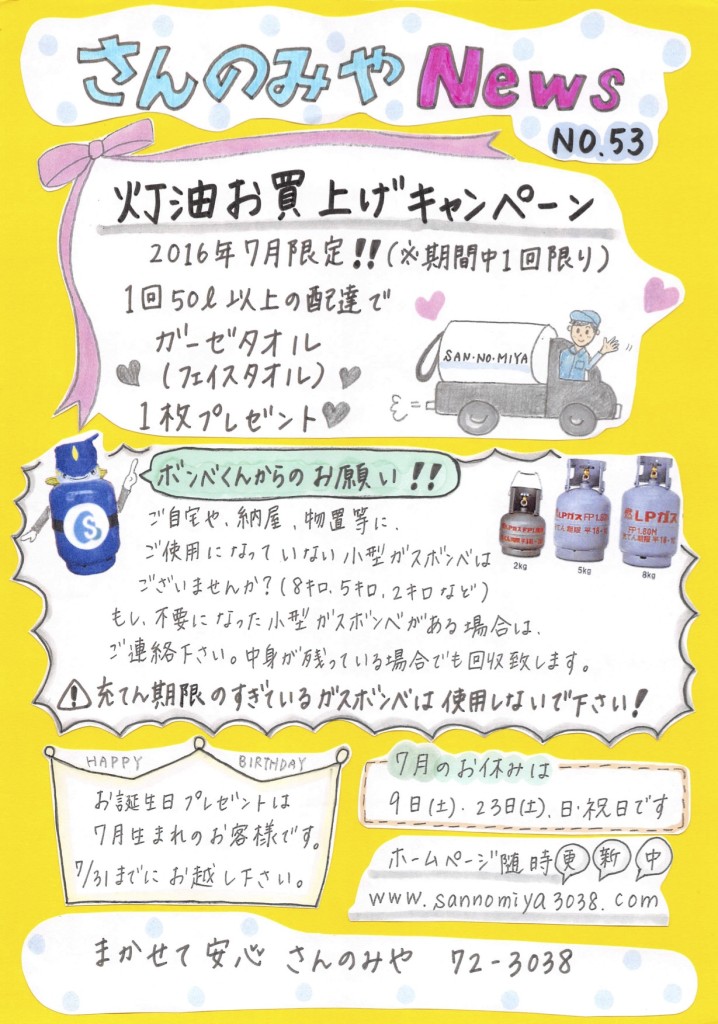 さんのみや News
NO.53
灯油お買上げキャンペーン
2016年7月限定!!(※期間中1回限り)
1回50ℓ以上の配達で
ガーゼタオル
(フェイスタオル)
1枚プレゼント
SAN・NO・MIYA
ボンベくんからのお願い!!
S
ご自宅や、納屋、物置等に、
ご使用になっていない小型ガスボンベは
ございませんか?(8キロ、5キロ、2キロなど)
もし、不要になった小型ガスボンベがある場合は、
ご連絡下さい。中身が残っている場合でも回収致します。
充てん期限のすぎているガスボンベは使用しないで下さい!
LPガス
2kg
5kg
8kg
HAPPY BIRTHDAY
お誕生日プレゼントは
7月生まれのお客様です。
7/31までにお越し下さい。
7月のお休みは
9日(土)・23日(土)、日・祝日です
ホームページ随時更新中
www.sannomiya3038.com
まかせて安心 さんのみや 72-3038